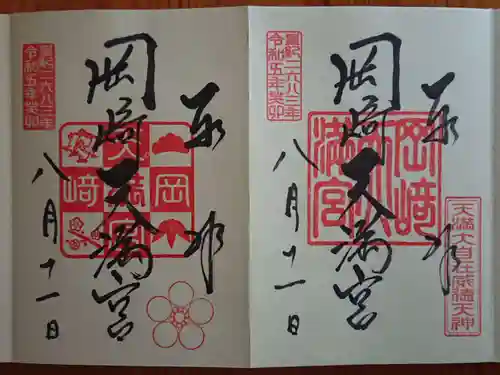 奉拝
天満大自在威徳天神
岡﨑天満宮
岡﨑
満宮
皇紀二六八三年
令和五年癸卯
八月十一日
奉拝
岡﨑天満宮
岡
﨑
天満宮
皇紀二六八三年
令和五年癸卯
八月十一日